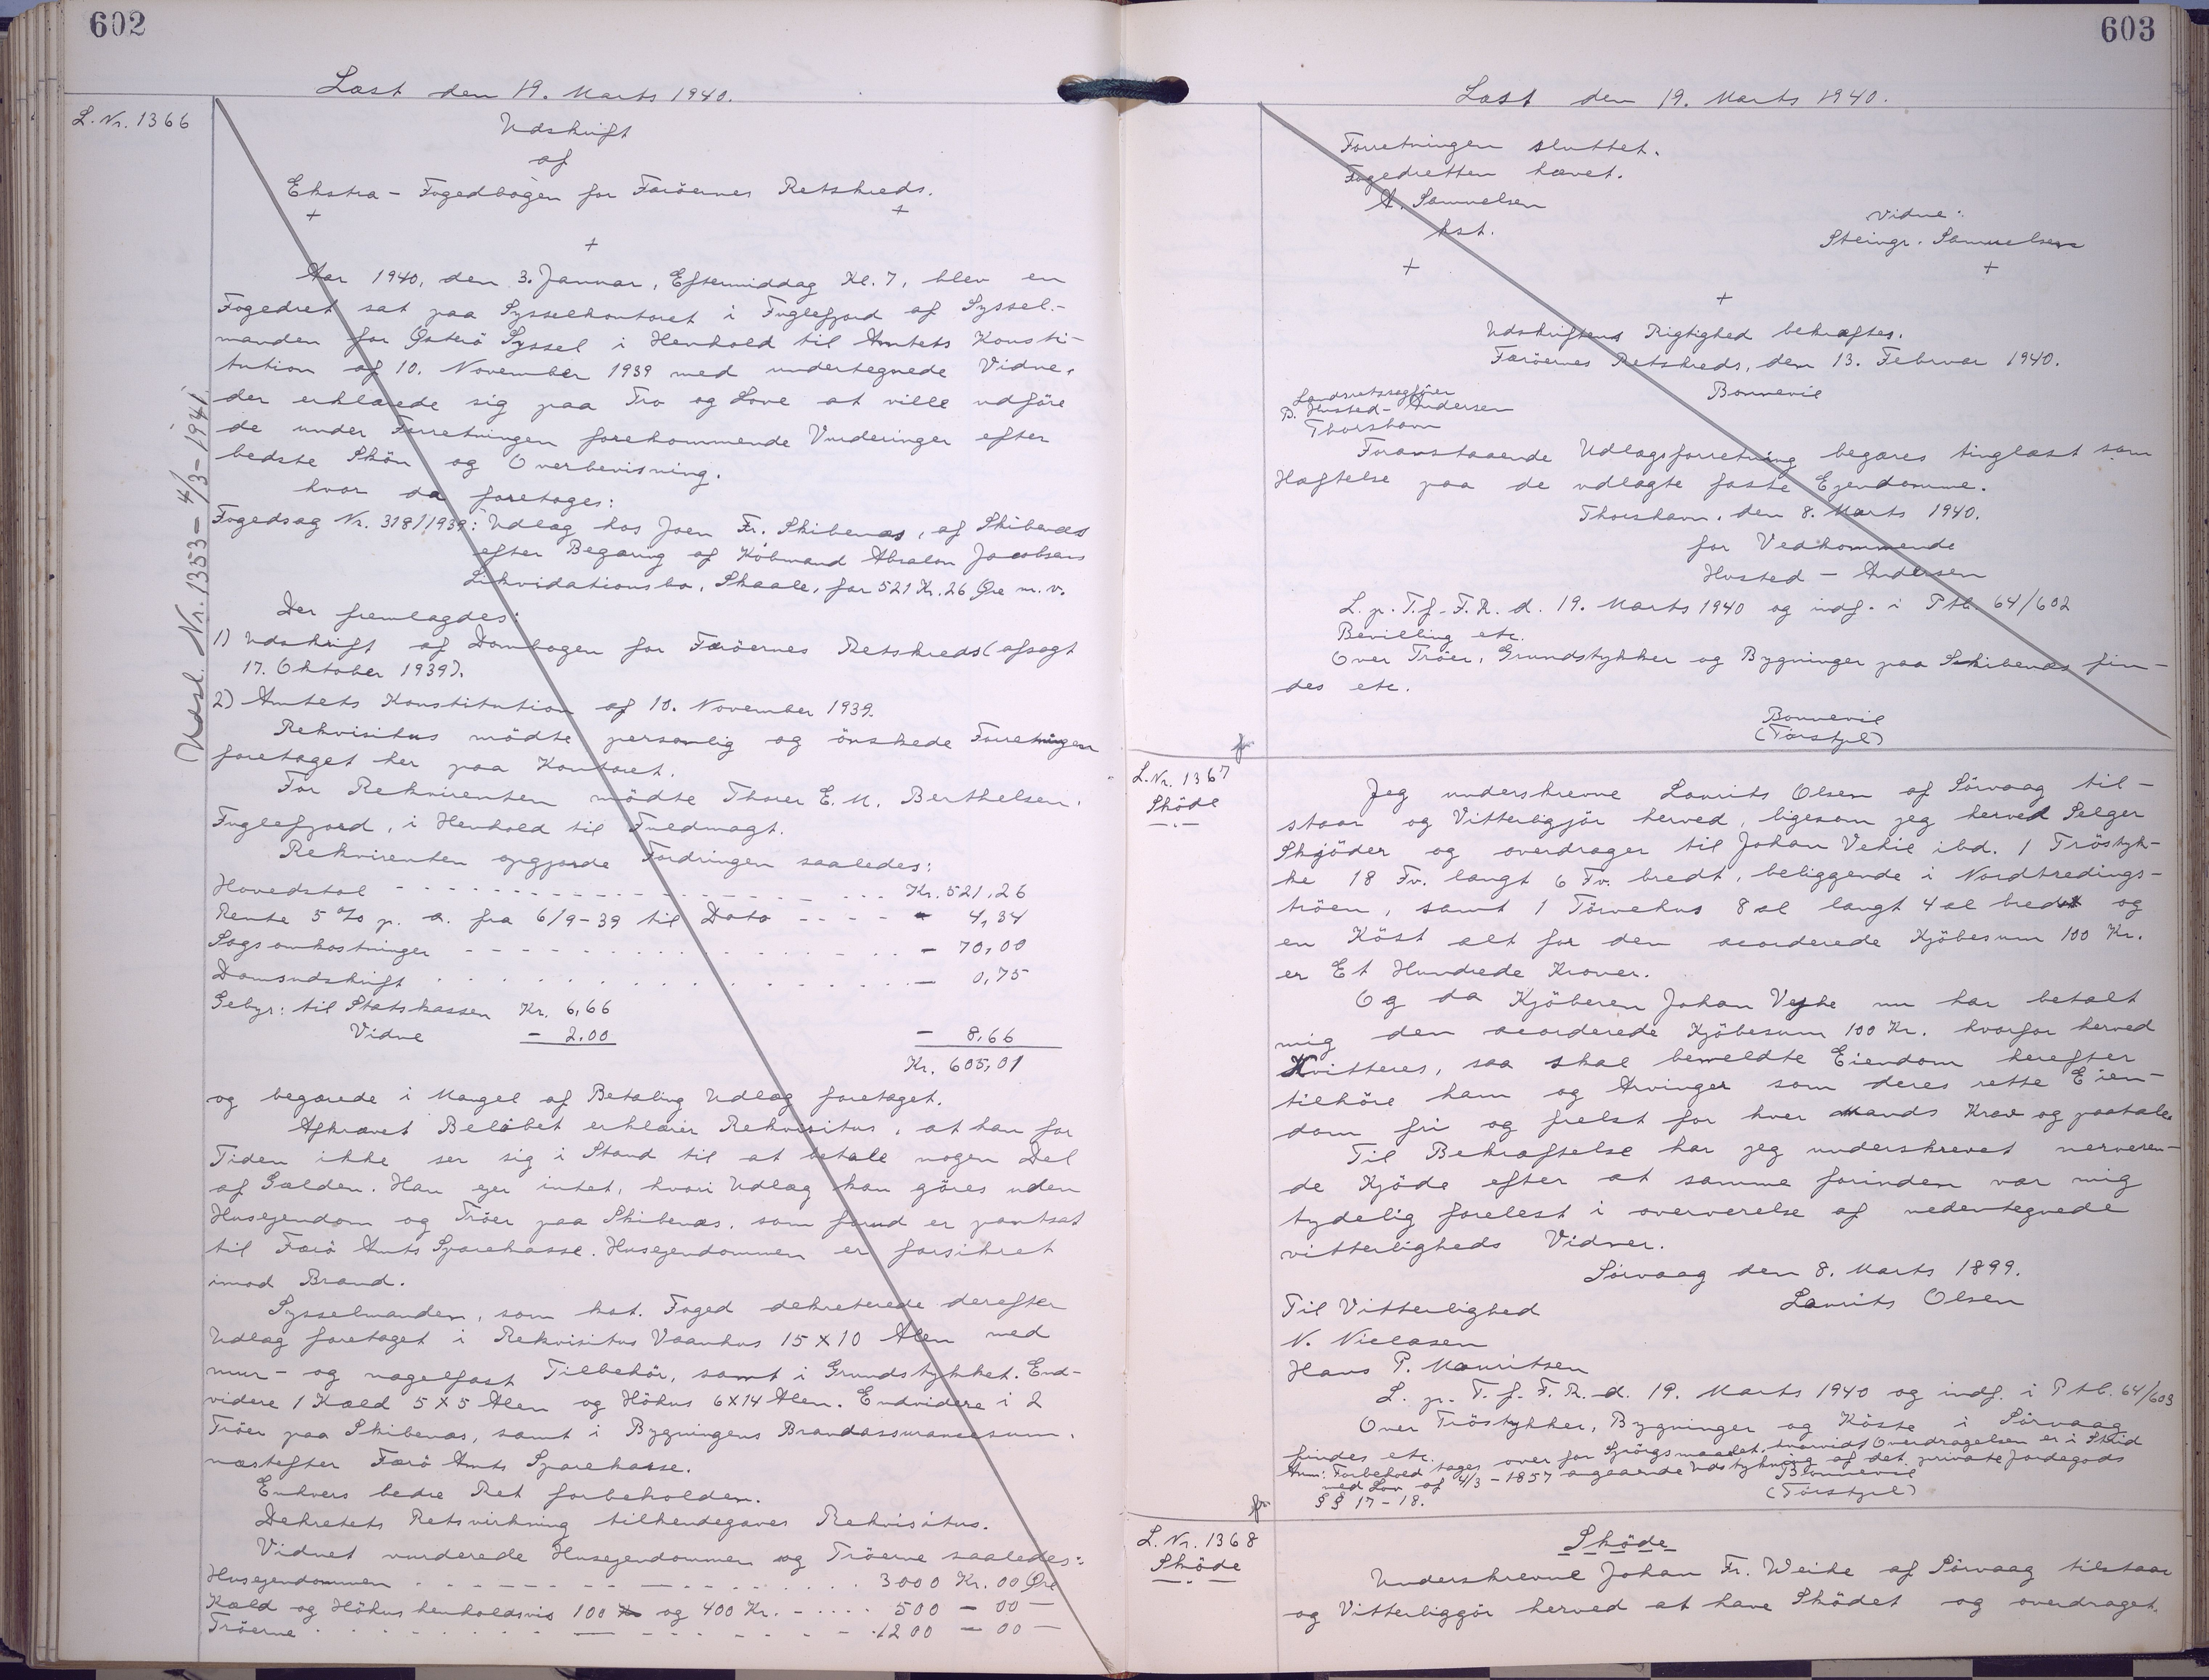 602
Læst den 19. Marts 1940.
L. Nr. 1366
Udskrift
af
Ekstra - Fogedbogen for Færöernes Retskreds.
+ +
+
Aar 1940, den 3. Januar, Eftermiddag Kl. 7, blev en
Fogedret sat paa Sysselkontoret i Fuglefjord af Syssel-
manden for Österö Syssel i Henhold til Amtets Konsti-
tution af 10. November 1939 med undertegnede Vidne,
der erklærede sig paa Tro og Love at ville udföre
de under Forretningen forekommende Vurderinger efter
bedste Skön og Overbevisning.
hvor da foretages:
Fogedsag Nr. 318/1939: Udlæg hos Joen Fr. Skibenæs, af Skibenæs
efter Begæring af Köbmand Absalon Jacobsens
Likvidationsbo, Skaale, for 521 Kr. 26 Øre m.v.
Der fremlagdes:
1) Udskrift af Dombogen for Færöernes Retskreds (afsagt
17. Oktober 1939).
2) Amtets Konstitution af 10. November 1939.
Rekvisitus mödte personlig og önskede Forretningen
foretaget her paa Kontoret.
For Rekvirenten mödte Thorer E. M. Berthelsen,
Fuglefjord, i Henhold til Fuldmagt.
Rekvirenten opgjorde Fordringen saaledes:
Hovedstol - - - - - - - Kr. 521,26
Rente 5 % p. a. fra 6/9-39 til Dato - - - - - 4,34
Sagsomkostninger - - - - - - - 70,00
Domsudskrift . . . . . . . - 0,75
Gebyr: til Statskassen Kr. 6,66
Vidne - 2,00 - 8,66
Kr. 605,01
og begærede i Mangel af Betaling Udlæg foretaget.
Afkrævet Belöbet erklærer Rekvisitus, at han for
Tiden ikke ser sig i Stand til at betale nogen Del
af Gælden. Han ejer intet, hvori Udlæg kan göres uden
Husejendom og Tröer paa Skibenæs, som forud er pantsat
til Færö Amts Sparekasse. Husejendommen er forsikret
imod Brand.
Sysselmanden, som kst. Foged dekreterede derefter
Udlæg foretaget i Rekvisitus Vaanhus 15 X 10 Alen med
mur- og nagelfast Tilbehör, samt i Grundstykket. End-
videre 1 Kæld 5 X 5 Alen og Höhus 6 X 14 Alen. Endvidere i 2
Tröer paa Skibenæs, samt i Bygningens Brandassurancesum,
næstefter Færö Amts Sparekasse.
Enhvers bedre Ret forbeholden.
Dekretets Retsvirkning tilkendegaves Rekvisitus.
Vidnet vurderede Husejendommen og Tröerne saaledes:
Husejendommen . - - - - - - 3000 Kr. 00 Øre
Kæld og Höhus henholdsvis 100 Kr og 400 Kr. - . . . . 500 - 00 -
Tröerne . . . . . - - - - - 1200 - 00 -
Udsl. Nr. 1353 - 4/3 - 1941.
603
Læst den 19. Marts 1940.
Forretningen sluttet.
Fogedretten hævet.
A. Samuelsen
kst.
Vidne:
Steingr. Samuelsen
+ +
+
Udskriftens Rigtighed bekræftes.
Færöernes Retskreds, den 13. Februar 1940.
Bonnevie
Landsretssagförer
B. Husted-Andersen
Thorshavn
Foranstaaende Udlægsforretning begæres tinglæst som
Hæftelse paa de udlagte faste Ejendomme.
Thorshavn, den 8. Marts 1940.
for Vedkommende
Husted - Andersen
L. p. T. f. F. R. d. 19. Marts 1940 og indf. i Ptb. 64/602
Bevilling etc.
Over Tröer, Grundstykker og Bygninger paa Skibenæs fin-
des etc.
Bonnevie
(Törstgl)
L. Nr. 1367
Sköde
Jeg underskrevne Laurits Olsen af Sörvaag til-
staar og Vitterligjör herved, ligesom jeg herved Selger
Skjöder og overdrager til Johan Vekie ibd. 1 Tröstyk-
ke 18 Fv. langt 6 Fv. bredt, beliggende i Nordtredings-
tröen, samt 1 Törvehus 8 al langt 4 al bredt og
en Köst alt for den acorderede Kjöbesum 100 Kr.
er Et Hundrede Kroner.
Og da Kjöberen Johan Vejhe nu har betalt
mig den acorderede Kjöbesum 100 Kr. hvorfor herved
Kvitteres, saa skal bemeldte Eiendom herefter
tilhöre ham og Arvinger som deres rette Eien-
dom fri og frelst for hver Mands Krav og paatale
Til Bekræftelse har jeg underskrevet nerveren-
de Kjöde efter at samme forinden var mig
tydelig forelest i oververelse af nedentegnede
vitterligheds Vidner.
Sörvaag den 8. Marts 1899.
Laurits Olsen
Til Vitterlighed
N. Nielasen
Hans P. Mouritsen
L. p. T. f. F. R. d. 19. Marts 1940 og indf. i Ptb. 64/603
Over Tröstykker, Bygninger og Köste i Sörvaag
findes etc.
Anm: Forbehold tages over for Spörgsmaalet, hvorvidt Overdragelsen er i Strid
med Lov af 4/3 - 1857 angaaende Udstykning af det private Jordegods
§ § 17 - 18.
Bonnevie
(Törstgl)
L. Nr. 1368
Sköde
Sköde
Underskrevne Johan Fr. Weihe af Sörvaag tilstaar
og Vitterliggör herved at have Sködet og overdraget